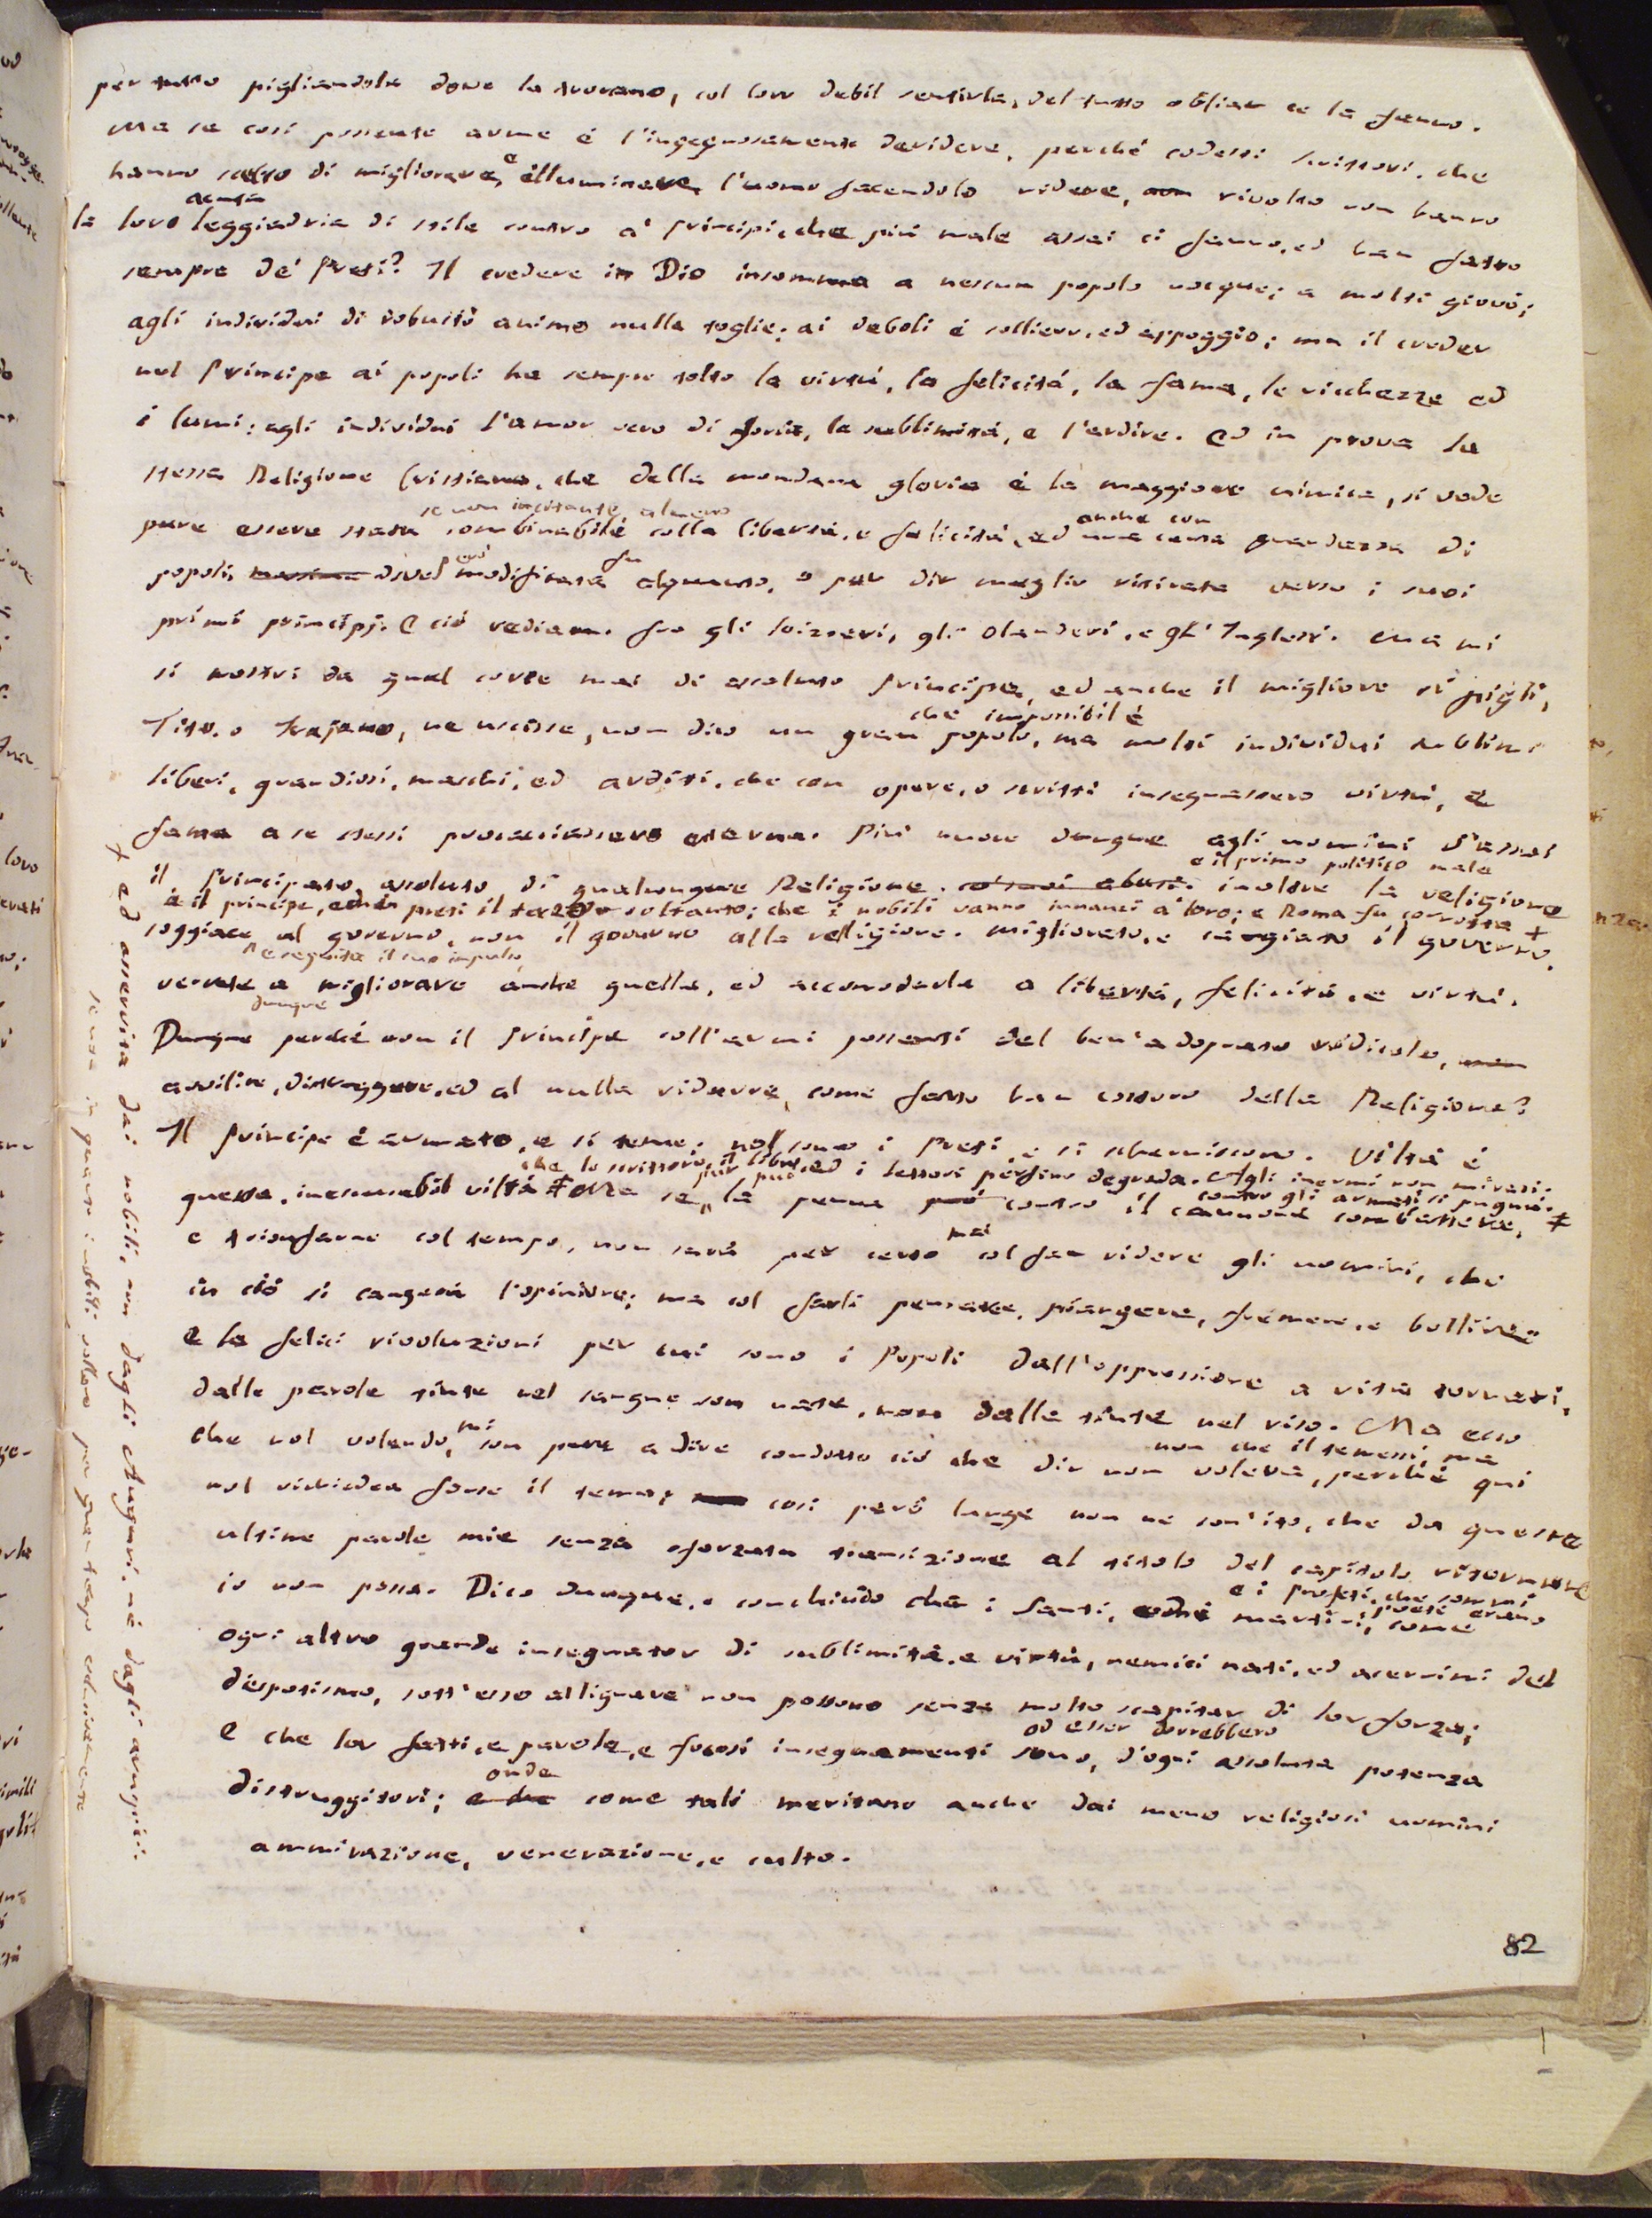 per tutto pigliandola dove la trovano, col loro debil sentirla, del tutto obliar ce la fanno.
Ma se così possente arme è l'ingegnosamente deridere, perché codesti scrittori, che
hanno di migliorare, e illuminare l'uomo facendolo ridere, non rivolto non hanno
acuta
la loro leggiadria di stile contro a' Principi, che più male assai ci fanno, ed han fatto
sempre de' Preti? Il credere in Dio insomma a nessun popolo nocque; a molti giovò;
agli individui di robusto animo nulla toglie; ai deboli è sollievo, ed appoggio; ma il creder
nel Principe ai popoli ha sempre tolto la virtù, la felicità, la fama, le ricchezze ed
i lumi; agli individui l'amor vero di gloria, la sublimità, e l'ardire. Ed in prova la
stessa Religione Cristiana, che della mondana gloria è la maggiore nimica, si vede
se non incitante, almeno anche con
pure essere stata combinabile colla libertà, e felicità, ed una certa grandezza di
popoli, dove modificata fu alquanto, o per dir meglio ritirata verso i suoi
primi principj. E ciò vediam fra gli Svizzeri, gli Olanderi, e gl'Inglesi. Ma mi
si mostri da qual corte mai di assoluto Principe, ed anche il migliore si pigli,
che impossibil è
Tito, o Trajano, ne uscisse, non dico un gran popolo, ma molti individui sublimi
liberi, grandiosi, maschi, ed arditi, che con opere, o scritti insegnassero virtù, e
fama a se stessi procacciassero eterna. Più nuoce dunque agli uomini d'assai
e il primo politico male
il Principato assoluto di qualunque Religione. inoltre la religione
è il principe, preti il terzo soltanto; che i nobili vanno innanzi a loro; e Roma fu corrotta +
soggiace al governo, non il governo alla religione. Migliorato, e cangiato il governo,
e seguita il suo impulso,
verrete a migliorare anche quella, ed accomodarla a libertà, felicità, e virtù.
dunque
Dunque perché non il Principe coll'armi possenti del ben'adoprato ridicolo, non
avvilire, distruggere, ed al nulla ridurre, come fatto han costoro della Religione?
Il Principe è armato, e si teme; nol sono i Preti, e si scherniscono. Viltà è
che lo scrittore, il libro, ed i lettori perfino degrada. Agli inermi non mirasi;
contro gli armati si pugni.
questa, inescusabil viltà ‡ Ma se pur può la penna può contro il cannone combattere, ‡
e trionfarne col tempo, non sarà per certo mai col far ridere gli uomini, che
in ciò si cangerà l'opinione; ma col farli pensare, piangere, fremere, e bollire
E le felici rivoluzioni per cui sono i Popoli dall'oppressione a vita tornati,
dalle parole tinte nel sangue son nate, non dalle tinte nel riso. Ma ecco
non che il temessi, ma
che nol volendo, mi son pure a dire condotto ciò che dir non voleva, perché qui
nol richiedea forse il tema; così però lunge non ne son'ito, che da queste
ultime parole mie senza sforzata transizione al titolo del capitolo ritornare
e i profeti, che sommi poeti erano
io non possa. Dico dunque, e conchiudo che i Santi, martiri, come
ogni altro grande insegnator di sublimità, e virtù, nemici nati, ed acerrimi del
dispotismo, sott'esso allignare non possono senza molto scapitar di lor forza;
od esser dovrebbero
E che lor fatti, e parole, e focosi insegnamenti sono, d'ogni assoluta potenza
onde
distruggitori; e che come tali meritano anche dai meno religiosi uomini
ammirazione, venerazione, e culto.
+ ed asservita dai nobili, non dagli Auguri, nè dagli aruspici:
se non in quanto i nobili vollero per gran tempo esclusivamente
82